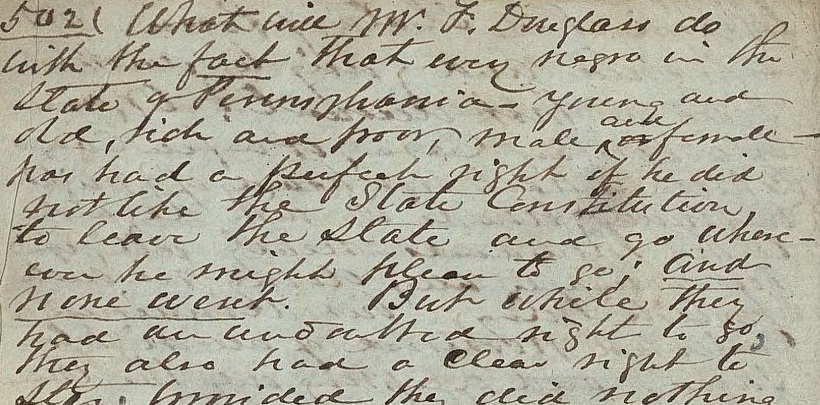 502( What will Mr. F. Douglass do
with the fact that every negro in the
State of Pennsylvania – young and
old, rich and poor, male and or female –
has had a perfect right if he did
not like the State Constitution
to leave the State and go where-
ever he might please to go; and
none went. But while they
had an undoubted right to go,
they also had a clear right to
stay provided they did nothing